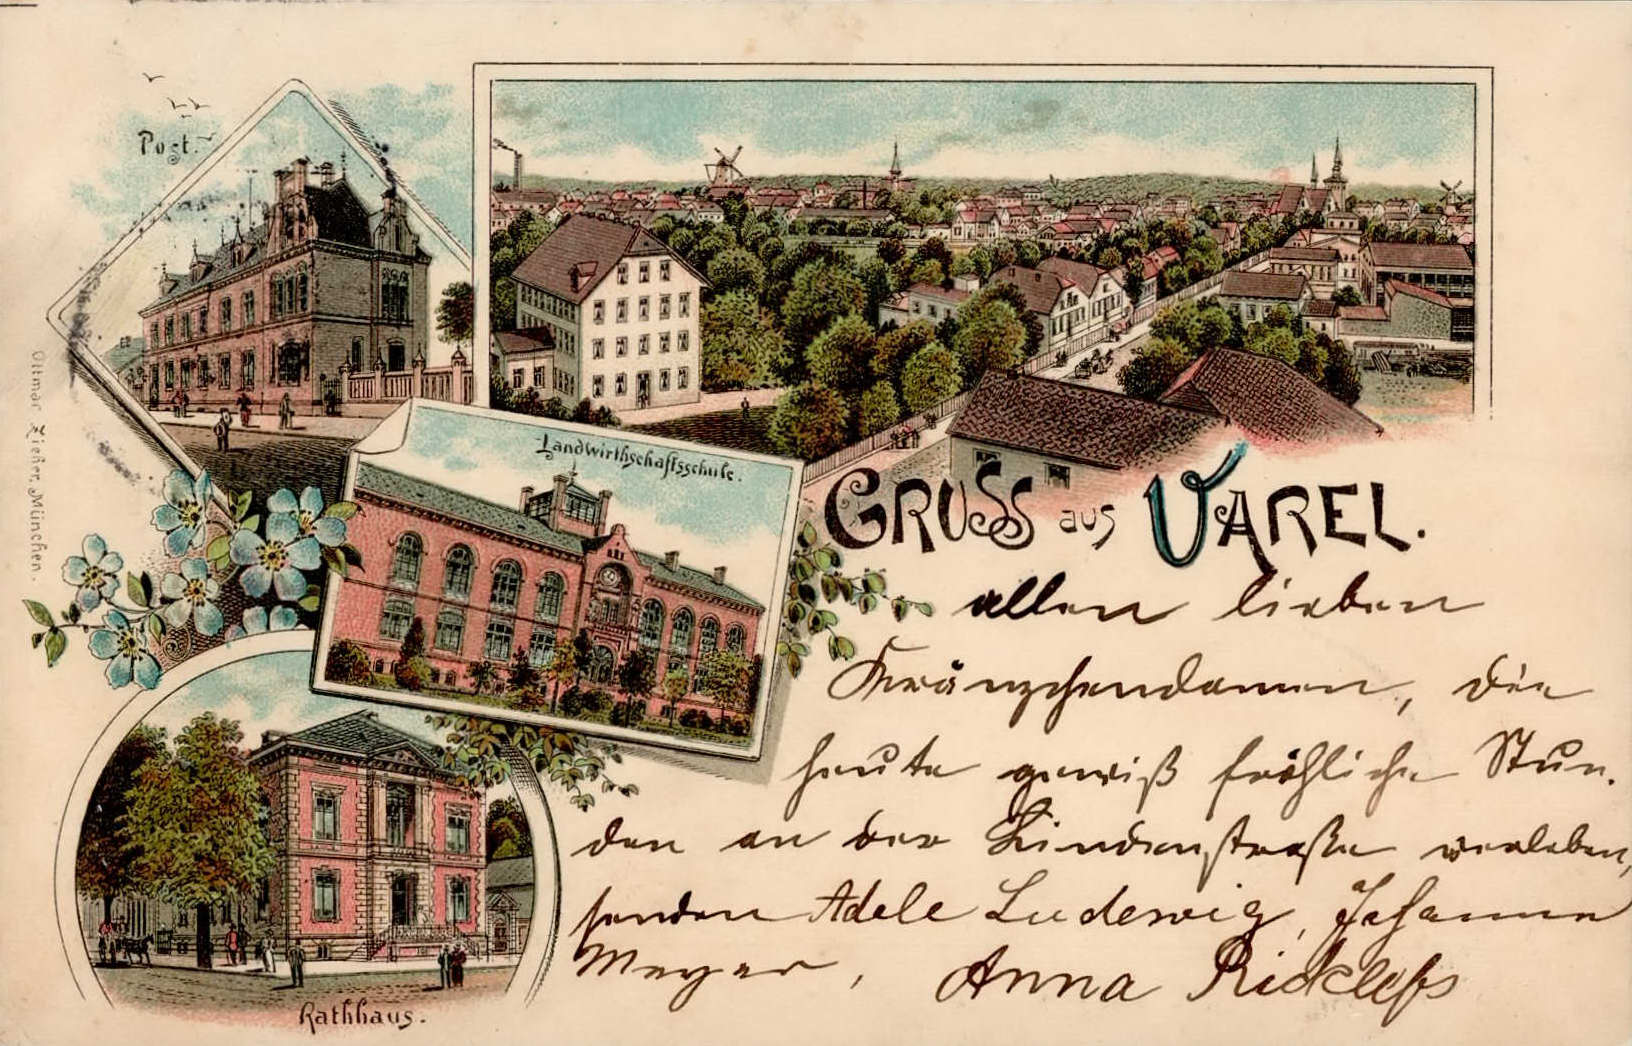 Post.
Landwirthschaftsschule.
Rathhaus.
Ottmar Zieher, München.
GRUSS aus VAREL.
allen lieben
Kränzchendamen, die
heute gewiß fröhliche Stun-
den an der Lindenstraße verleben,
senden Adele Ludewig, Johanne
Meyer, Anna Ricklefs